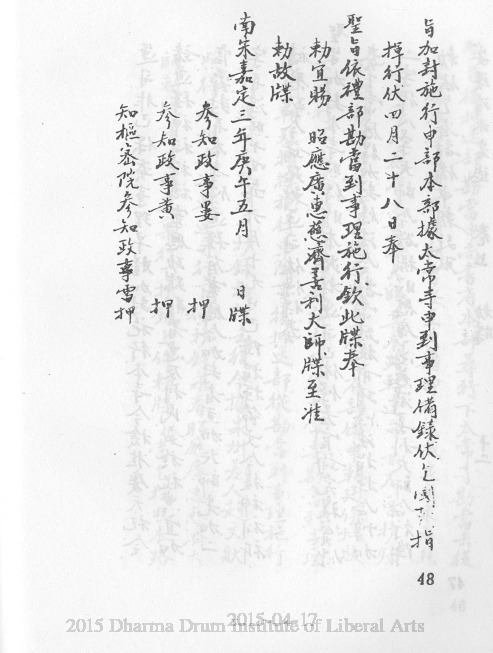 旨加封施行申部本部據太常寺申到事理備錄伏乞指
揮行伏四月二十八日奉
聖旨依禮部勘當到事理施行欽此牒奉
勅宜賜 昭應廣惠慈濟善利大師牒至准
勅故牒
南宋嘉定三年庚午五月 日牒
參知政事婁 押
參知政事黃 押
知樞密院參知政事雷押
48
2015-04-17
2015 Dharma Drum Institute of Liberal Arts